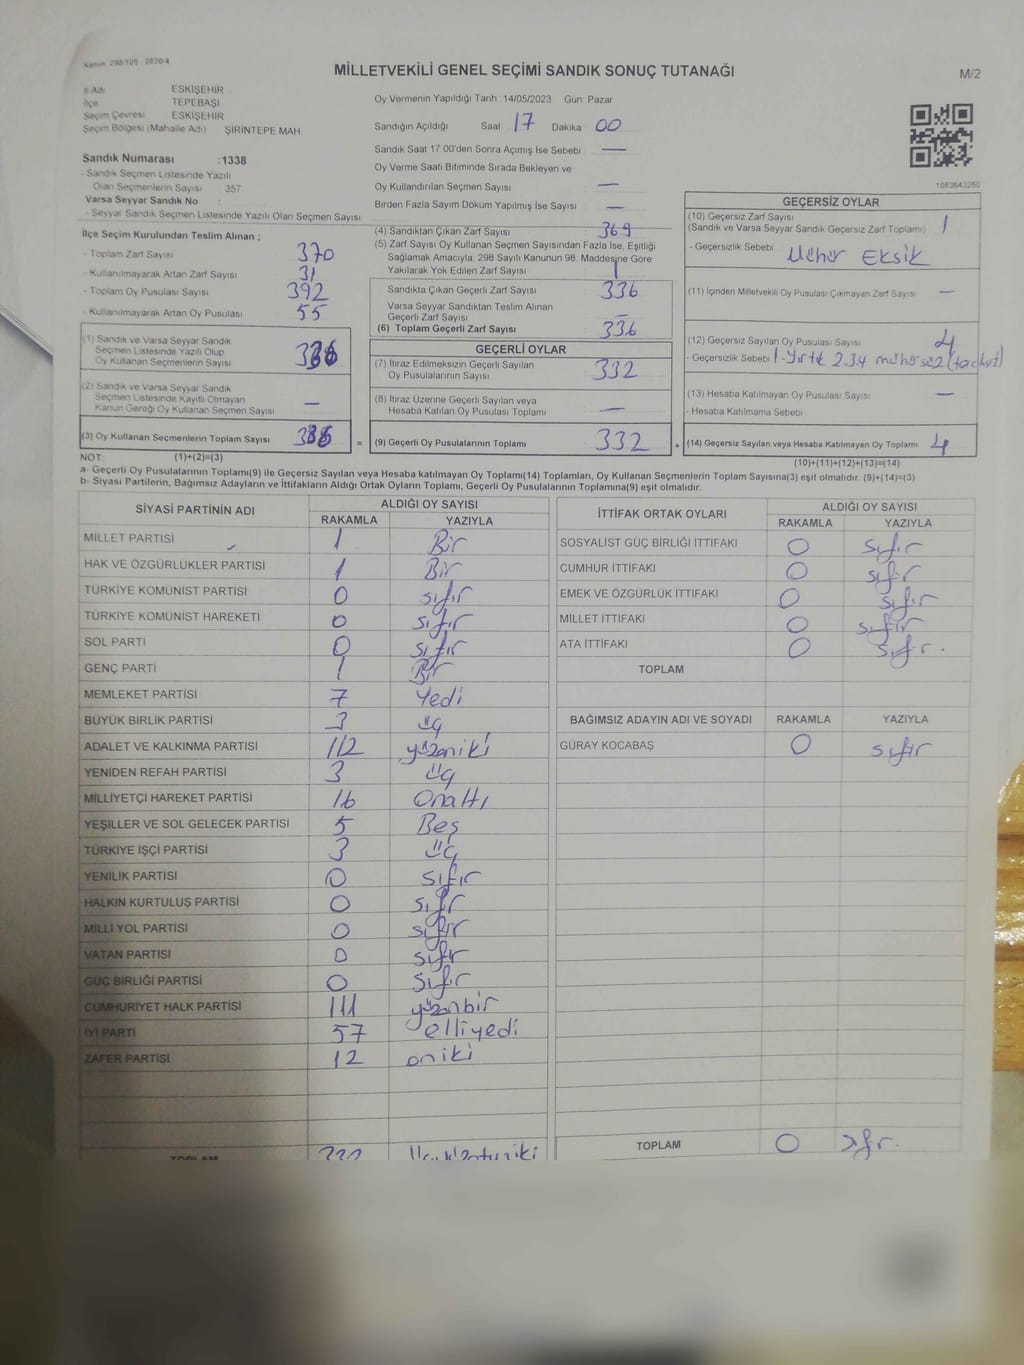 Kanun 298/105 2839/4
MİLLETVEKİLİ GENEL SEÇİMİ SANDIK SONUÇ TUTANAĞI
M/2
İl Adı ESKİŞEHİR
İlçe TEPEBAŞI
Seçim Çevresi ESKİŞEHİR
Seçim Bölgesi (Mahalle Adı) ŞİRİNTEPE MAH.
Sandık Numarası :1338
- Sandık Seçmen Listesinde Yazılı
Olan Seçmenlerin Sayısı : 357
Varsa Seyyar Sandık No :
- Seyyar Sandık Seçmen Listesinde Yazılı Olan Seçmen Sayısı
İlçe Seçim Kurulundan Teslim Alınan ;
- Toplam Zarf Sayısı 370
- Kullanılmayarak Artan Zarf Sayısı 31
- Toplam Oy Pusulası Sayısı 392
- Kullanılmayarak Artan Oy Pusulası 55
(1) Sandık ve Varsa Seyyar Sandık
Seçmen Listesinde Yazılı Olup
Oy Kullanan Seçmenlerin Sayısı
(2) Sandık ve Varsa Seyyar Sandık
Seçmen Listesinde Kayıtlı Olmayan
Kanun Gereği Oy Kullanan Seçmen Sayısı —
(3) Oy Kullanan Seçmenlerin Toplam Sayısı =
Oy Vermenin Yapıldığı Tarih : 14/05/2023 Gün: Pazar
Sandığın Açıldığı Saat 17 Dakika 00
Sandık Saat 17:00'den Sonra Açılmış İse Sebebi —
Oy Verme Saati Bitiminde Sırada Bekleyen ve
Oy Kullandırılan Seçmen Sayısı —
Birden Fazla Sayım Döküm Yapılmış İse Sayısı —
(4) Sandıktan Çıkan Zarf Sayısı 369
(5) Zarf Sayısı Oy Kullanan Seçmen Sayısından Fazla İse, Eşitliği
Sağlamak Amacıyla, 298 Sayılı Kanunun 98. Maddesine Göre
Yakılarak Yok Edilen Zarf Sayısı 1
Sandıkta Çıkan Geçerli Zarf Sayısı 336
Varsa Seyyar Sandıktan Teslim Alınan
Geçerli Zarf Sayısı —
(6) Toplam Geçerli Zarf Sayısı 336
GEÇERLİ OYLAR
(7) İtiraz Edilmeksizin Geçerli Sayılan
Oy Pusulalarının Sayısı 332
(8) İtiraz Üzerine Geçerli Sayılan veya
Hesaba Katılan Oy Pusulası Toplamı —
(9) Geçerli Oy Pusulalarının Toplamı 332 +
1083643260
GEÇERSİZ OYLAR
(10) Geçersiz Zarf Sayısı 1
(Sandık ve Varsa Seyyar Sandık Geçersiz Zarf Toplamı)
- Geçersizlik Sebebi Mühür Eksik
(11) İçinden Milletvekili Oy Pusulası Çıkmayan Zarf Sayısı —
(12) Geçersiz Sayılan Oy Pusulası Sayısı 4
- Geçersizlik Sebebi 1-Yırtık 2.3.4 mühürsüz
(13) Hesaba Katılmayan Oy Pusulası Sayısı —
- Hesaba Katılmama Sebebi
(14) Geçersiz Sayılan veya Hesaba Katılmayan Oy Toplamı 4
NOT: (1)+(2)=(3) (10)+(11)+(12)+(13)=(14)
a- Geçerli Oy Pusulalarının Toplamı(9) ile Geçersiz Sayılan veya Hesaba katılmayan Oy Toplamı(14) Toplamları, Oy Kullanan Seçmenlerin Toplam Sayısına(3) eşit olmalıdır. (9)+(14)=(3)
b- Siyasi Partilerin, Bağımsız Adayların ve İttifakların Aldığı Ortak Oyların Toplamı, Geçerli Oy Pusulalarının Toplamına(9) eşit olmalıdır.
SİYASİ PARTİNİN ADI ALDIĞI OY SAYISI
RAKAMLA YAZIYLA
MİLLET PARTİSİ 1 Bir
HAK VE ÖZGÜRLÜKLER PARTİSİ 1 Bir
TÜRKİYE KOMÜNİST PARTİSİ 0 sıfır
TÜRKİYE KOMÜNİST HAREKETİ 0 sıfır
SOL PARTİ 0 sıfır
GENÇ PARTİ 1 Bir
MEMLEKET PARTİSİ 7 Yedi
BÜYÜK BİRLİK PARTİSİ 3 üç
ADALET VE KALKINMA PARTİSİ 112 yüzoniki
YENİDEN REFAH PARTİSİ 3 üç
MİLLİYETÇİ HAREKET PARTİSİ 16 Onaltı
YEŞİLLER VE SOL GELECEK PARTİSİ 5 Beş
TÜRKİYE İŞÇİ PARTİSİ 3 üç
YENİLİK PARTİSİ 0 sıfır
HALKIN KURTULUŞ PARTİSİ 0 sıfır
MİLLİ YOL PARTİSİ 0 sıfır
VATAN PARTİSİ 0 sıfır
GÜÇ BİRLİĞİ PARTİSİ 0 sıfır
CUMHURİYET HALK PARTİSİ 111 yüzonbir
İYİ PARTİ 57 elliyedi
ZAFER PARTİSİ 12 oniki
TOPLAM 332 Üçyüzotuziki
İTTİFAK ORTAK OYLARI ALDIĞI OY SAYISI
RAKAMLA YAZIYLA
SOSYALİST GÜÇ BİRLİĞİ İTTİFAKI 0 sıfır
CUMHUR İTTİFAKI 0 sıfır
EMEK VE ÖZGÜRLÜK İTTİFAKI 0 sıfır
MİLLET İTTİFAKI 0 sıfır
ATA İTTİFAKI 0 sıfır.
TOPLAM
BAĞIMSIZ ADAYIN ADI VE SOYADI RAKAMLA YAZIYLA
GÜRAY KOCABAŞ 0 sıfır
TOPLAM 0 sıfır.